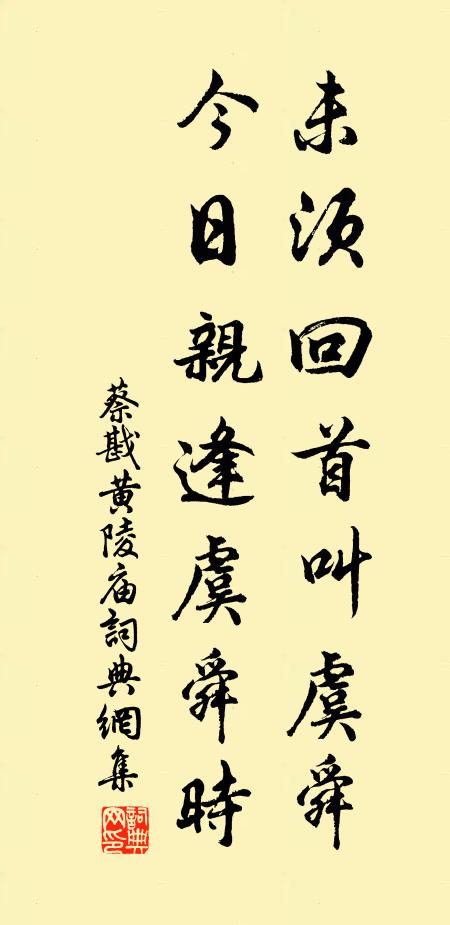 未須回首叫虞舜
今日親逢虞舜時
蔡戡黄陵庙詞典網集
詞典网印